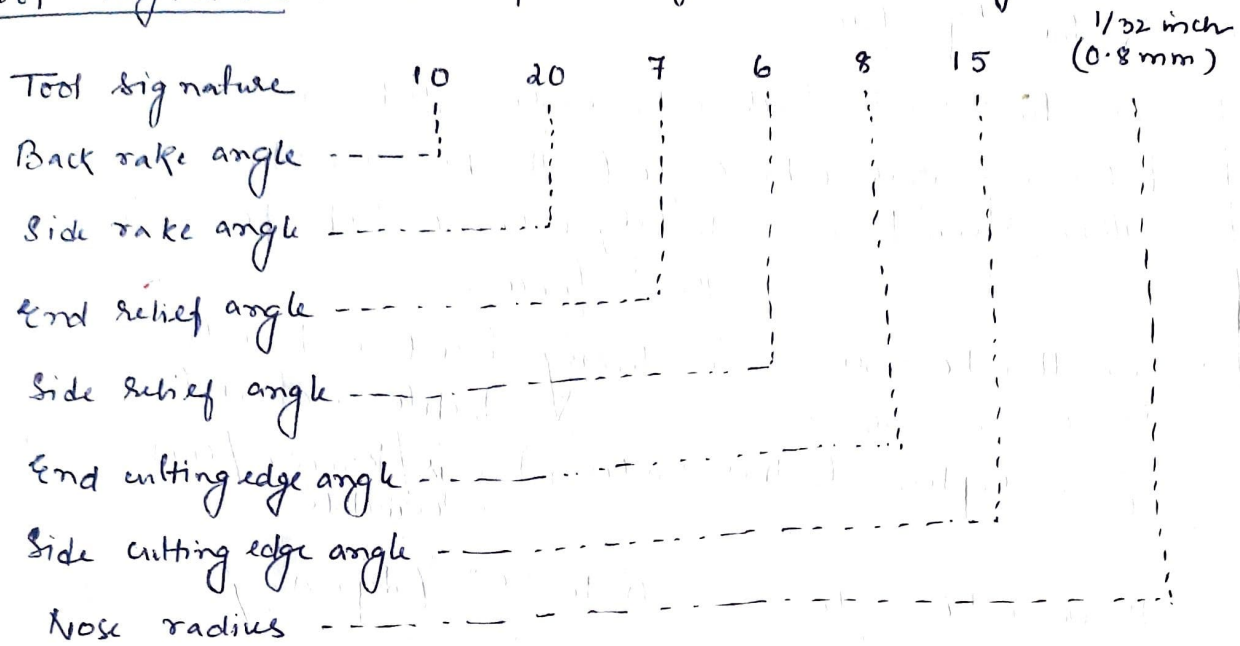 1/32 inch
Tool signature 10 20 7 6 8 15 (0.8 mm)
Back rake angle
Side rake angle
End relief angle
Side relief angle
End cutting edge angle
Side cutting edge angle
Nose radius